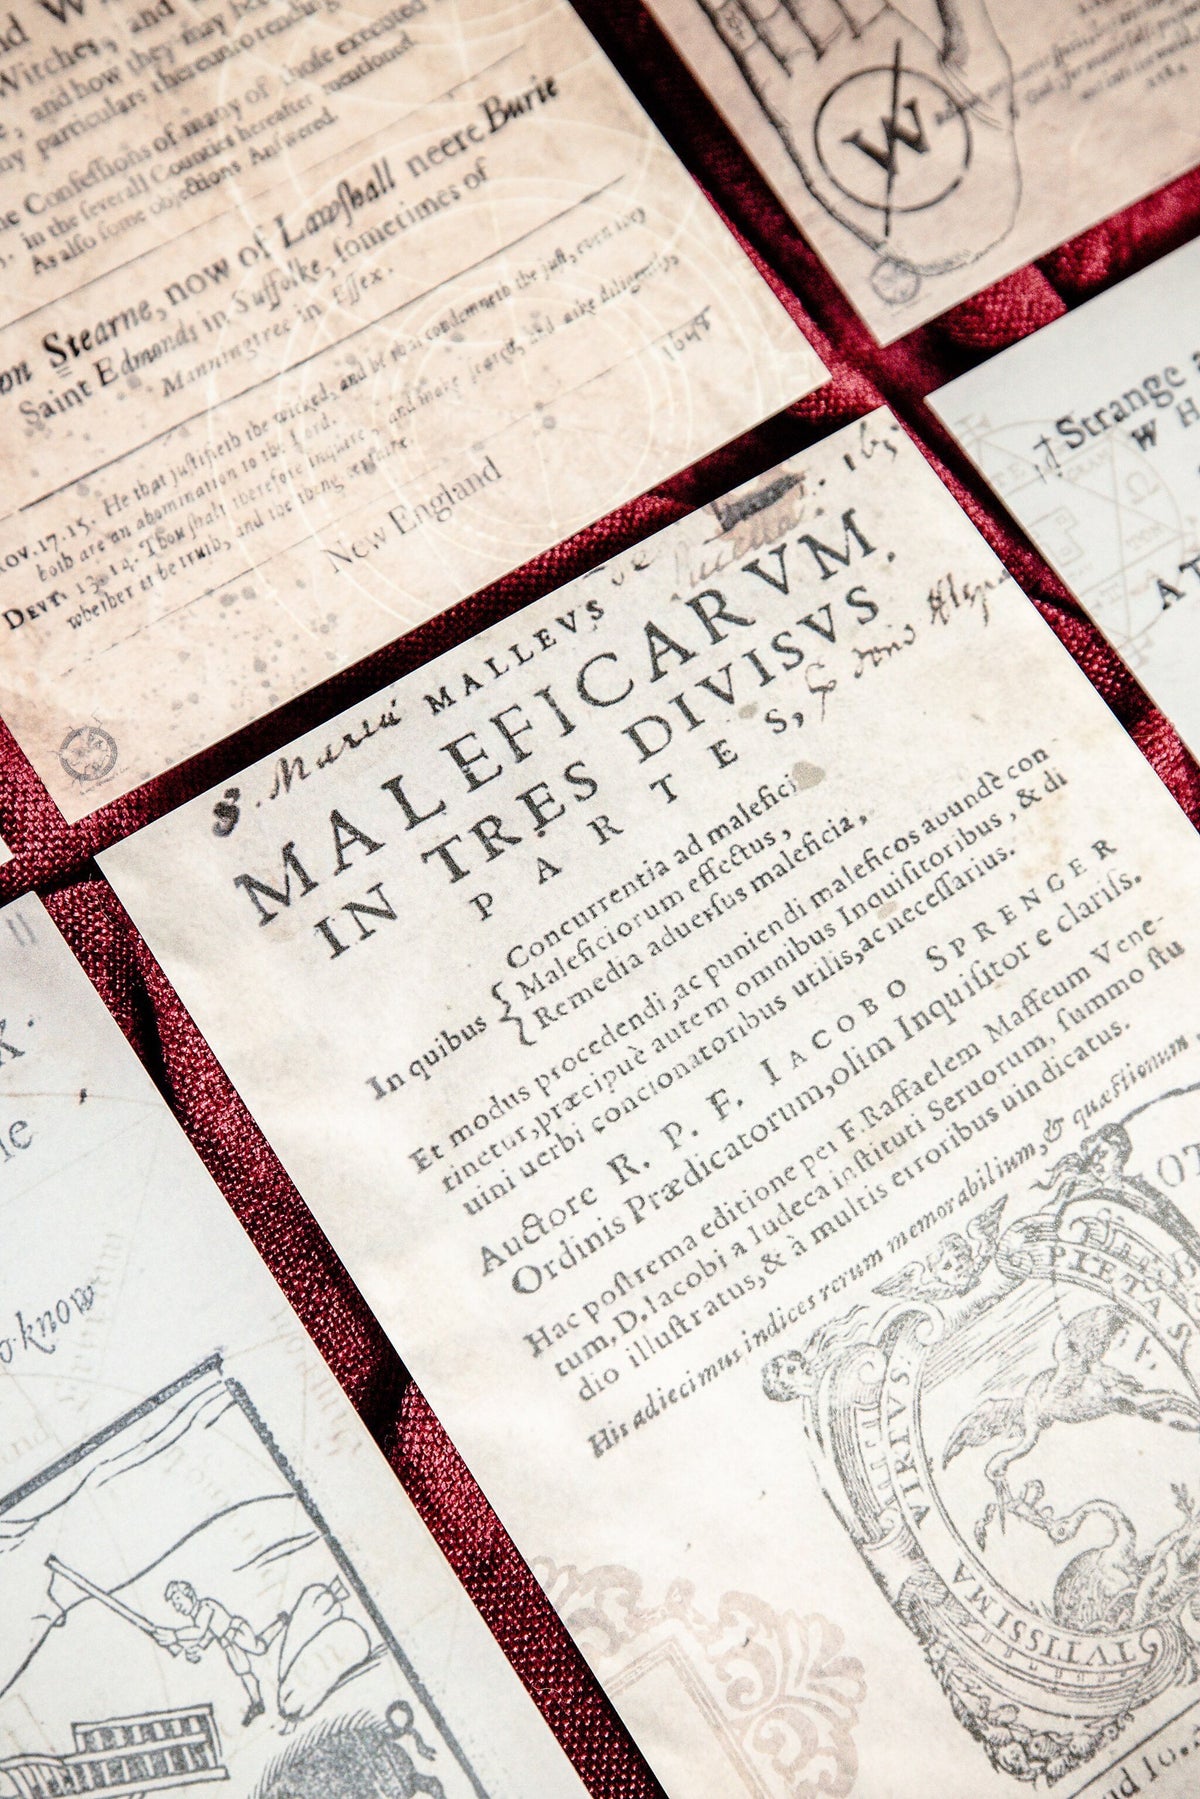 Witches, and
and how they may be
particulars thereunto tending
Confeſſions of many of thoſe executed
in the ſeverall Counties hereafter mentioned.
As alſo ſome objections Anſwered.
Stearne, now of Lawſhall neere Burie
Saint Edmonds in Suffolke, ſometimes of
Manningtree in Eſſex.
17.15. He that juſtifieth the wicked, and he that condemneth the juſt, even they
both are an abomination to the Lord.
DEVT. 13.14. Thou ſhalt therefore inquire, and make ſearch, and aske diligently,
whether it be truth, and the thing certaine.
1648
New England
W
Strange
W H
AT
S. Maria MALLEVS
MALEFICARVM.
IN TRES DIVISVS
PARTES,
In quibus
Concurrentia ad malefici
Maleficiorum effectus,
Remedia aduerſus maleficia,
Et modus procedendi, ac puniendi maleficos abundè con
tinetur, præcipuè autem omnibus Inquiſitoribus, & di
uini uerbi concionatoribus utilis, ac neceſſarius.
Auctore R. P. F. IACOBO SPRENGER
Ordinis Prædicatorum, olim Inquiſitore clariſs.
Hac poſtrema editione per F. Raffaelem Maffeum Vene-
tum. D. Iacobi a Iudeca inſtituti Seruorum, ſummo ſtu
dio illuſtratus, & à multis erroribus uindicatus.
His adiecimus indices rerum memorabilium, & quæſtionum
PIETAS
VIRIVS
TVTISSIMA
know